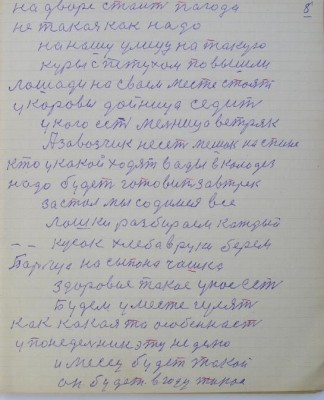 8
на дворе стоит пагода
не такая как надо
на нашу улицу на такую
куры с петухом повышли
лошади на своем месте стоять
у коровы дойница седит
у кого ест мелница ветряк
Азавозчик несет мешок на спине
кто укакой ходят вады вколодез
надо будет готовит завтрек
застол мы содимся все
лошки разбираем каждый
-- кусок хлеба вруки берем
на чашка
здоровья такое унос ест
будем уместе гулят
как какая та особенаст
упонеделник эту неделю
и месец будет такой
он будет вгоду